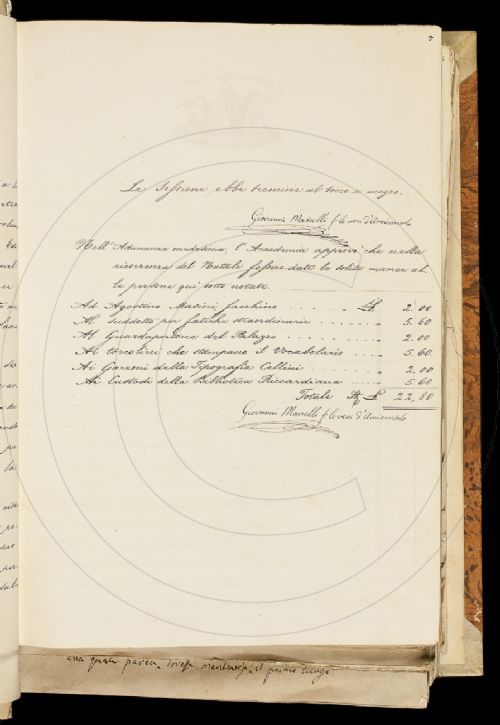 5
La Sessione ebbe termine al tocco e mezzo.
Giovanni Masselli f. le veci d'Arciconsolo
Nell'Adunanza medesima, l'Accademia approvò che nella
ricorrenza del Natale fossero date le solite mance al
le persone qui sotto notate.
Ad Agostino Masini facchino . . . . . . . „ £ 2.00
Al Suddetto per fatiche straordinarie . . . . . . „ 5.60
Al Guardaportone del Palazzo . . . . . . . „ 2.00
Ai torcolieri che stampano il Vocabolario . . . . „ 5.60
Ai Garzoni della Tipografia Cellini . . . . . . „ 2.00
Ai Custodi della Biblioteca Riccardiana . . . . „ 5.60
Totale £ 22,80
Giovanni Masselli f. le veci d'Arciconsolo
una parea dovesse mantenersi, il primo luogo